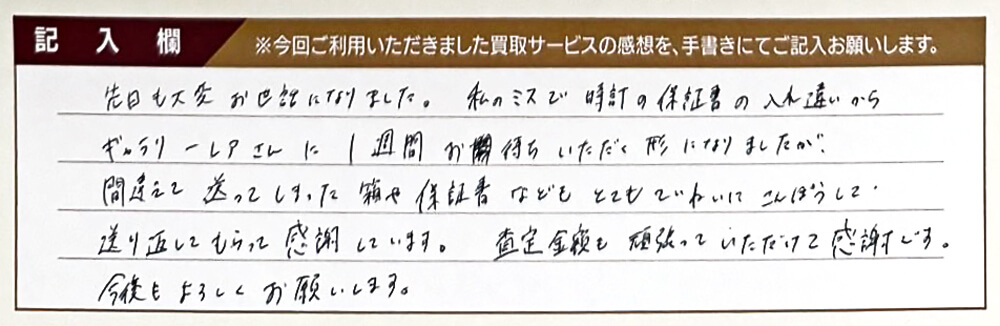 記入欄
※今回ご利用いただきました買取サービスの感想を、手書きにてご記入お願いします。
先日も大変お世話になりました。私のミスで時計の保証書の入れ違いから
ギャラリーレアさんに1週間お待ちいただく形になりましたが、
間違えて送ってしまった箱や保証書などもとてもていねいにこんぽうして、
送り返してもらって感謝しています。査定金額も頑張っていただけて感謝です。
今後もよろしくお願いします。